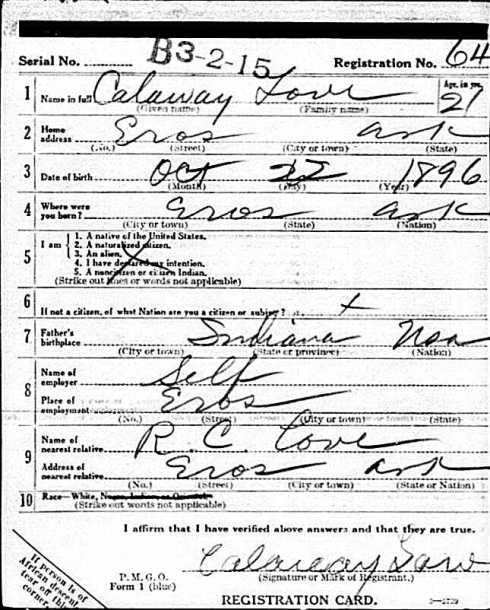 Serial No. B3-2-15 Registration No. 64
1 Name in full Calaway Love Age, in yrs. 21
(Given name) (Family name)
2 Home address Eros Ark
(No.) (Street) (City or town) (State)
3 Date of birth Oct 22 1896
(Month) (Day) (Year)
4 Where were you born? Eros Ark
(City or town) (State) (Nation)
5 I am
1. A native of the United States.
2. A naturalized citizen.
3. An alien.
4. I have declared my intention.
5. A noncitizen or citizen Indian.
(Strike out lines or words not applicable)
6 If not a citizen, of what Nation are you a citizen or subject? x
7 Father's birthplace Indiana
(City or town) (State or province) (Nation)
8 Name of employer Self
Place of employment Eros
(No.) (Street) (City or town) (State)
9 Name of nearest relative R. C. Love
Address of nearest relative Eros Ark
(No.) (Street) (City or town) (State or Nation)
10 Race—White, Negro, Indian, or Oriental.
(Strike out words not applicable)
I affirm that I have verified above answers and that they are true.
Calaway
P. M. G. O. (Signature or Mark of Registrant.)
Form 1 (blue)
REGISTRATION CARD.
If person is of
African descent
tear off this
corner.